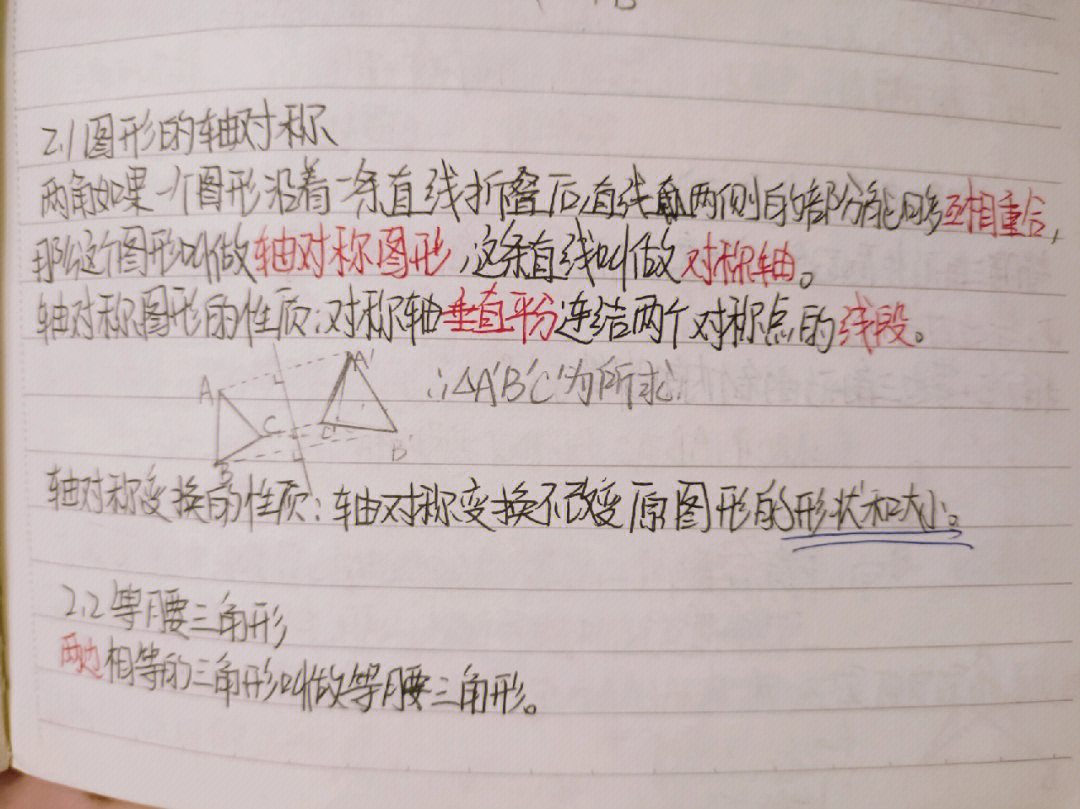 2.1图形的轴对称
如果一个图形沿着一条直线折叠后,直线两侧的部分能够互相重合,
那么这个图形叫做轴对称图形,这条直线叫做对称轴。
轴对称图形的性质:对称轴垂直平分连结两个对称点的线段。
A A' ∴△A'B'C'为所求.
C C'
B B'
轴对称变换的性质:轴对称变换不改变原图形的形状和大小。
2.2等腰三角形
两边相等的三角形叫做等腰三角形。